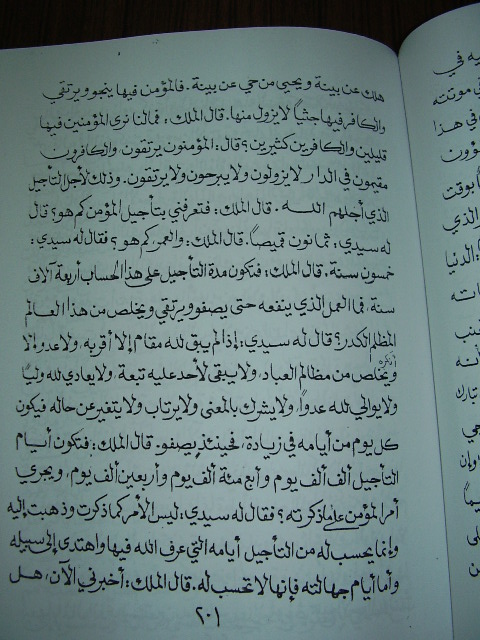 هلك عن بينة ويحيى من حي عن بينة. فالمؤمن فيها ينجو ويرتقي
والكافر فيها جثياً لا يزول منها. قال الملك: فما لنا نرى المؤمنين فيها
قليلين والكافرين كثيرين؟ قال: المؤمنون يرتقون والكافرون
مقيمون في الدار لا يزولون ولا يبرحون ولا يرتقون. وذلك لأجل التأجيل
الذي أجلهم الله. قال الملك: فتعرفني بتأجيل المؤمن كم هو؟ قال
له سيدي: ثمانون قميصاً. قال الملك: والعمر كم هو؟ فقال له سيدي:
خمسون سنة. قال الملك: فتكون مدة التأجيل على هذا الحساب أربعة آلاف
سنة، فما العمل الذي ينفعه حتى يصفو ويرتقي ويخلص من هذا العالم
المظلم الكدر؟ قال له سيدي: إذا لم يبق لله مقام إلا أقر به، ولا عدو إلا
أنكره
ويخلص من مظالم العباد، ولا يبقى لأحد عليه تبعة، ولا يعادي لله ولياً
ولا يوالي لله عدواً، ولا يشرك بالمعنى ولا يرتاب ولا يتغير عن حاله فيكون
كل يوم من أيامه في زيادة، فحينئذ يصفو. قال الملك: فتكون أيام
التأجيل ألف ألف يوم وأربع مئة ألف يوم وأربعين ألف يوم، ويجري
أمر المؤمن على ما ذكرته؟ فقال له سيدي: ليس الأمر كما ذكرت وذهبت إليه
وإنما يحسب له من التأجيل أيامه التي عرف الله فيها واهتدى إلى سبيله
وأما أيام جهالته فإنها لا تحسب له. قال الملك: أخبرني الآن، هل
٢٠١
يه في
موتته
في هذا
ؤون
بوقت
الذي
الدنيا
اته
أنه
تبارك
وإن